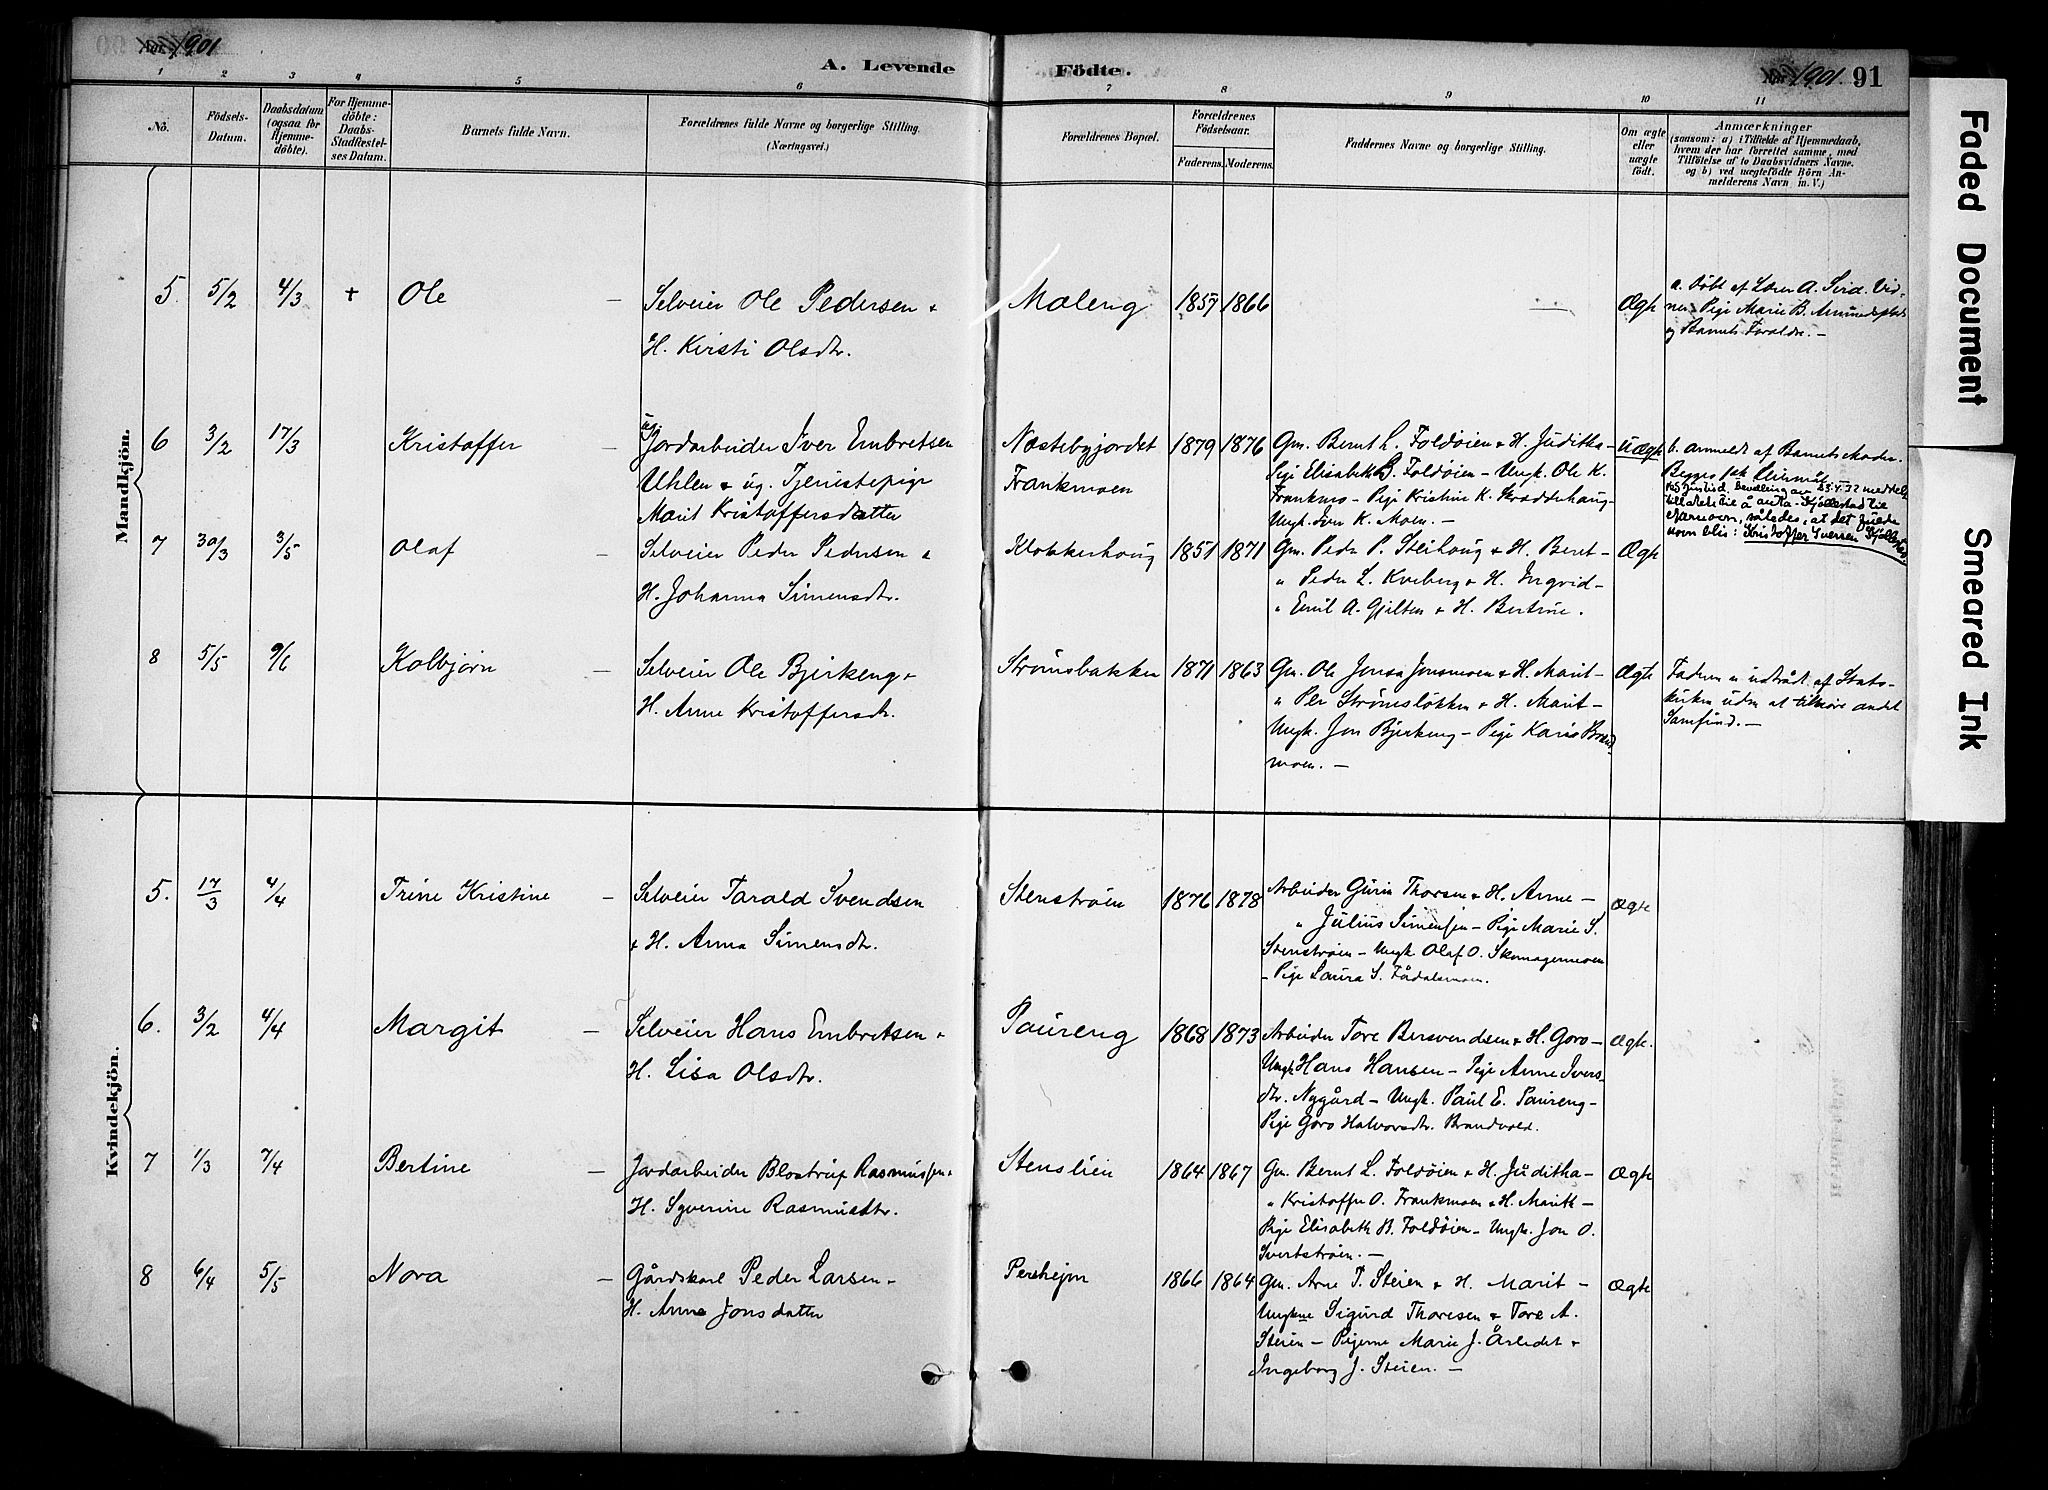 Aar 1901
A. Levende
Födte.
Aar 1901. 91
1 2 3 4 5 6 7 8 9 10 11
No.
Födsels-
Datum.
Daabsdatum
(ogsaa for
Hjemme-
döbte).
For Hjemme-
döbte:
Daabs-
Stadfæstel-
ses Datum.
Barnets fulde Navn.
Forældrenes fulde Navne og borgerlige Stilling.
(Næringsvei.)
Forældrenes Bopæl.
Forældrenes
Födselsaar.
Faderens. Moderens.
Faddernes Navne og borgerlige Stilling.
Om ægte
eller
uægte
födt.
Anmærkninger
(saasom: a) i Tilfælde af Hjemmedaab,
hvem der har forrettet samme, med
Tilföielse af to Daabsvidners Navne.
og b) ved uægtefödte Börn An-
melderens Navn m. V.)
Mandkjön.
5. 5/2 4/3 + Ole –
Selveier Ole Pedersen +
H. Kirsti Olsdtr.
Moleng 1857 1866 — Ægte
a. Döbt af Lærer A. Vid-
nes Pige Marie B.
og Barnets Forældre. –
6 3/2 17/3 Kristoffer –
ug.
Jordarbeider Iver Embretsen
Uhlen + ug. Tjenestepige
Marit Kristoffersdatter
Næstebyjordet
Frankmoen
1879 1876
Gm. Bernt L. Foldøien + H. Juditha –
Pige Elisabeth B. Foldøien – Ungk. Ole K.
Frankmo – Pige Kristine K. Kradderhaug –
Ungk. Iver K. Moen. –
Uægte
b. anmeldt af Barnets Moder.
Begges
bevilling av 25.4.32 meddelt
tillatelse til å anta Kjøllestad til
efternavn, således, at det fulde
navn blir: Kristoffer Iversen Kjøllestad
7 30/3 3/5 Olaf –
Selveier Peder Pedersen +
H. Johanna Simensdtr.
Klokkerhaug 1851 1871
Gm. Peder P. Steihaug + H. Beret –
" Peder L. Kveberg + H. Ingrid –
" Emil A. Gjelten + H. Bertine.
Ægte
8 5/5 9/6 Kolbjørn –
Selveier Ole Bjerkeng +
H. Anne Kristoffersdtr.
Strømsbakken 1871 1863
Gm. Ole Jonsa Jonsmoen + H. Marit –
" Per Strømsløkken + H. Marit –
Ungk. Jon Bjerkeng – Pige Kari Brand
moen. –
Ægte
Faderen er udtrådt af Stats-
kirken uden at tilhøre andet
Samfund. –
Kvindekjön.
5. 17/3 4/4 Trine Kristine –
Selveier Tarald Svendsen
+ H. Anna Simensdtr.
Stenstrøen 1876 1878
Arbeider Thorsen + H. Anne –
" Julius Simensen – Pige Marie S.
Stenstrøen – Ungk. Olaf O. Skomagermoen
– Pige Laura S. Fådalsmoen.
Ægte
6. 3/2 4/4 Margit –
Selveier Hans Embretsen +
H. Lisa Olsdtr.
Paureng 1868 1873
Arbeider Tore Bersvendsen + H. Goro –
Ungk Hans Hansen – Pige Anne Ivers-
dtr. Nygård – Ungk. Paul E. Paureng –
Pige Goro Halvorsdtr. Brandvold.
Ægte.
7 1/3 7/4 Bertine –
Jordarbeider Blostrup Rasmussen +
H. Syverine Rasmusdtr.
Stenslien 1864 1867
Gm. Bernt L. Foldøien + H. Juditha –
" Kristoffer O. Frankmoen + H. Marith –
Pige Elisabeth B. Foldøien – Ungk. Jon O.
Svertstrøen. –
Ægte
8 6/4 5/5 Nora –
Gårdskarl Peder Larsen –
H. Anne Jonsdatter
Persheim 1866 1864
Gm. Arne T. Steien + H. Marit –
Ungkne Sigurd Thoresen + Tore A.
Steien – Pigerne Marie J. Årledet +
Ingeborg J. Steien. –
Ægte
Faded Document
Smeared Ink